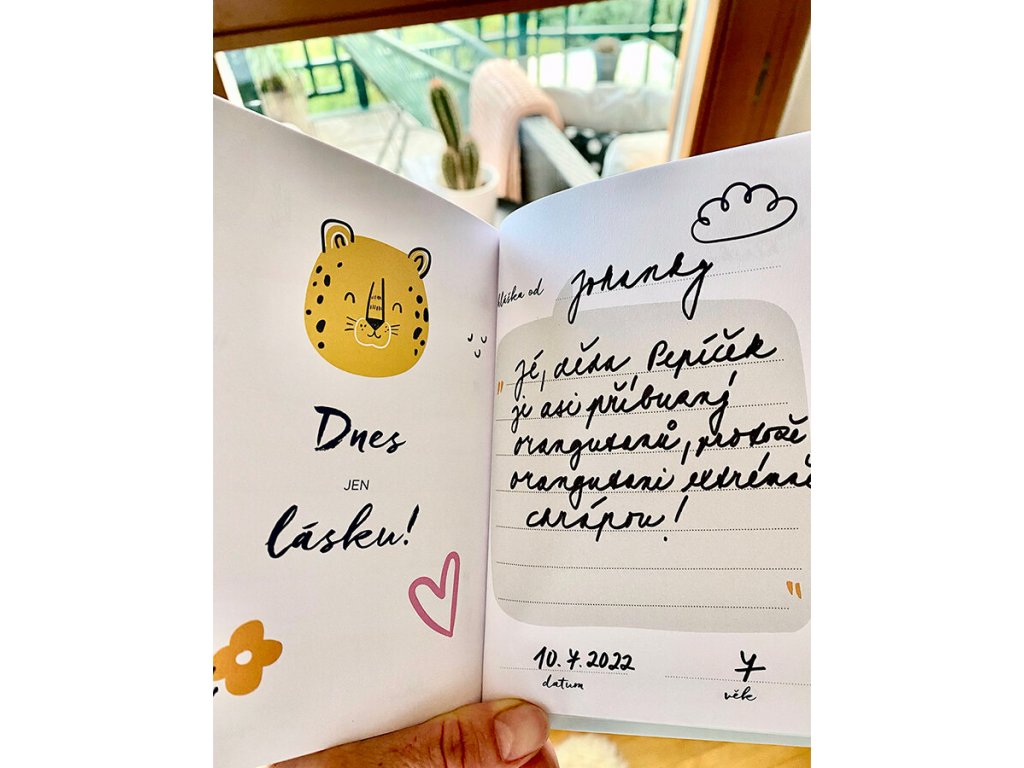 Dnes
JEN
lásku!
hláška od Johanky
" Jé, děda Pepíček
je asi příbuzný
orangutanů, protože
orangutani extrémně
chrápou! "
10.7.2022
datum
7
věk